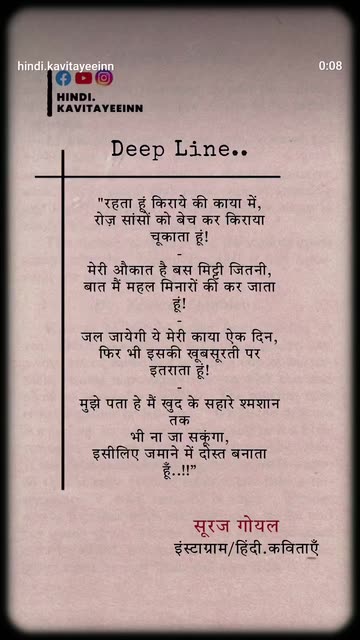 hindi.kavitayeeinn
0:08
HINDI.
KAVITAYEEINN
Deep Line..
"रहता हूं किराये की काया में,
रोज़ सांसों को बेच कर किराया
चूकाता हूं!
-
मेरी औकात है बस मिट्टी जितनी,
बात मैं महल मिनारों की कर जाता
हूं!
-
जल जायेगी ये मेरी काया ऐक दिन,
फिर भी इसकी खूबसूरती पर
इतराता हूं!
-
मुझे पता हे मैं खुद के सहारे श्मशान
तक
भी ना जा सकूंगा,
इसीलिए जमाने में दोस्त बनाता
हूँ..!!”
सूरज गोयल
इंस्टाग्राम/हिंदी.कविताएँ